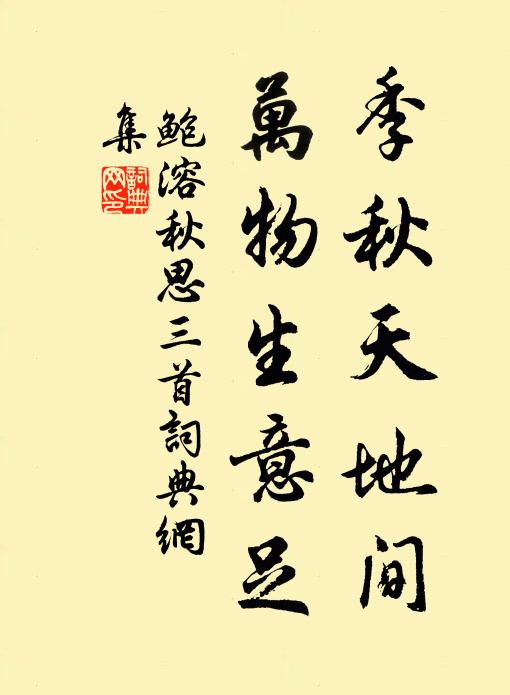 季秋天地间
萬物生意足
鲍溶秋思三首詞典網
集
詞典網印